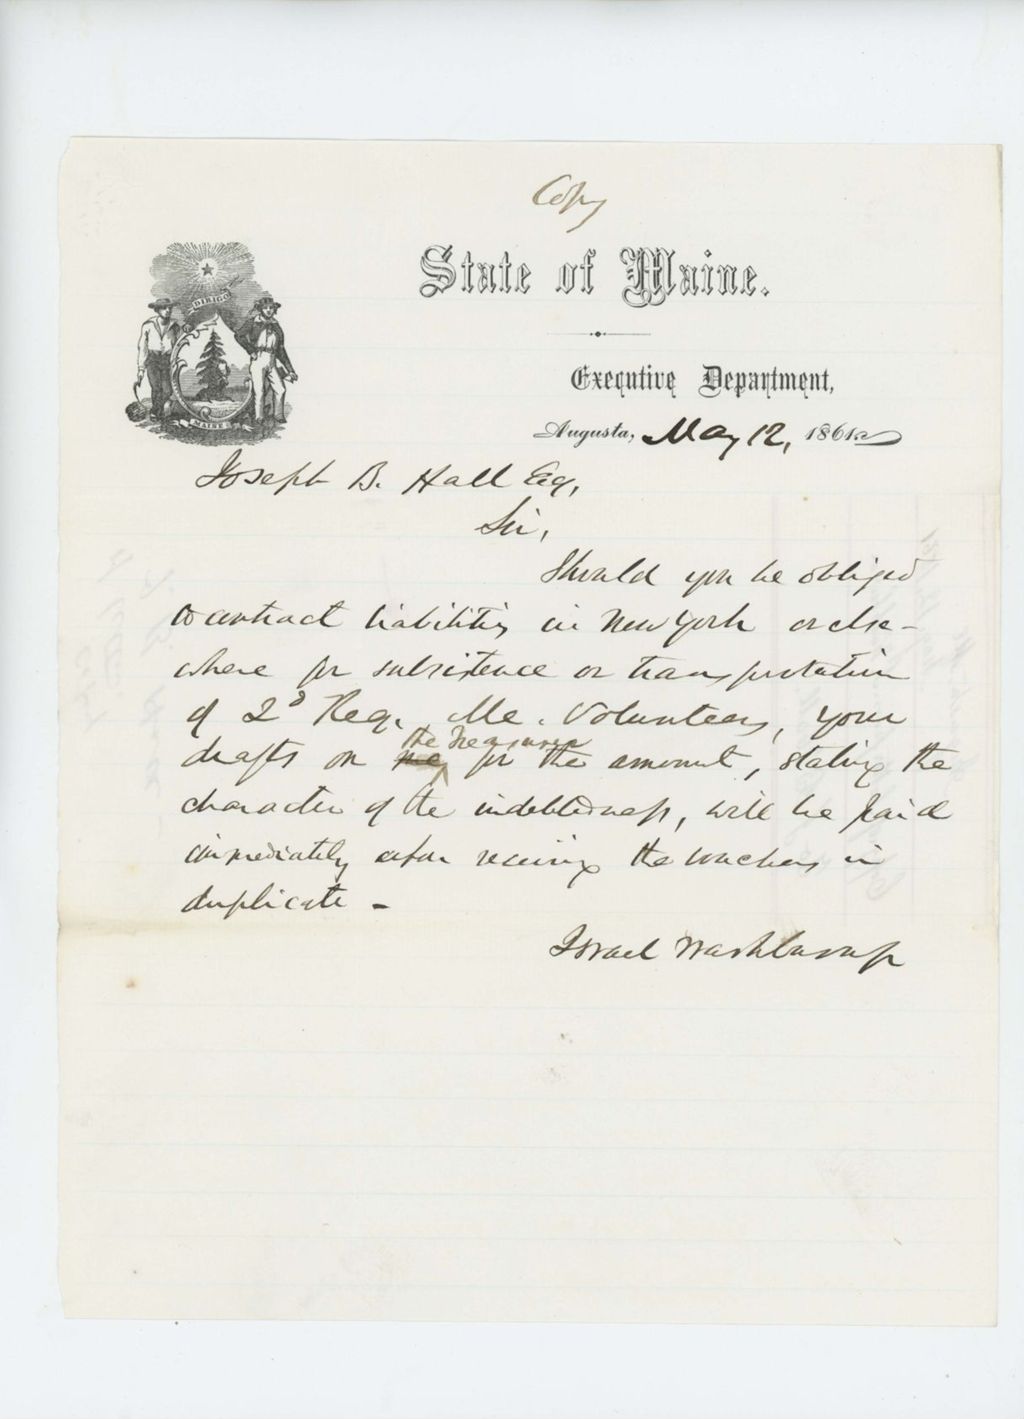 Copy
State of Maine.
DIRIGO
Executive Department,
MAINE
Augusta, May 12, 1861
Joseph B. Hall Esq,
Sir,
Should you be obliged
to contract liabilities in New York or else-
where for subsistence or transportation
of 2d Reg. Me. Volunteers, your
the Treasurer
drafts on me for the amount, stating the
character of the indebtedness, will be paid
immediately after receiving the vouchers in
duplicate -
Israel Washburn Jr